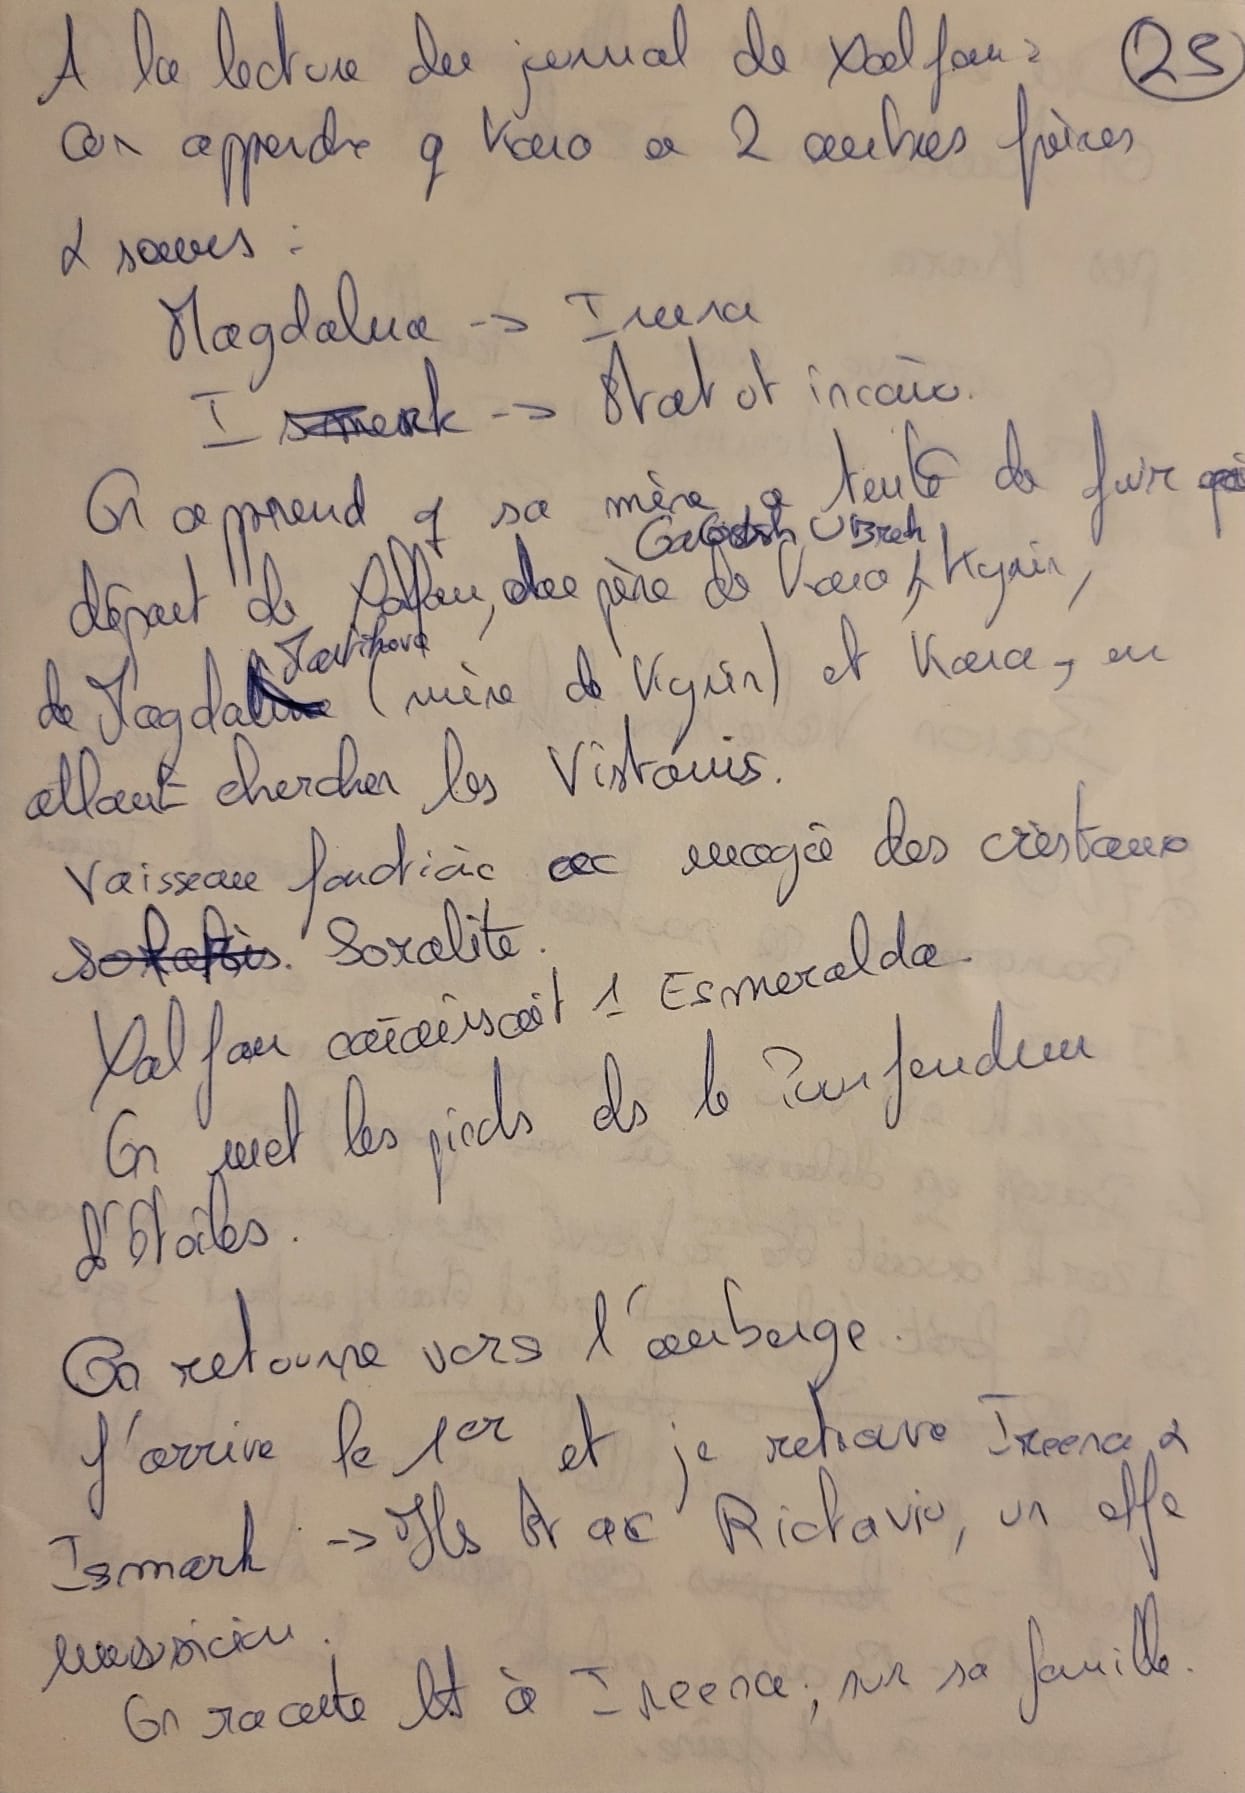 A la lecture du journal de Xalfau : 25
On apprendre q Kara a 2 autres frères
& sœurs :
Magdalena -> Ireena
I smark -> Statut incōnu.
On apprend q sa mère a tenté de fuir
Ubreh
départ de Xalfau, du père de Kara, Kyrin,
de Magdal (mère de Kyrin) et Kara, en
allant chercher les Vistanis.
Vaisseau fonctiōne ac magie des cristaux
Soralite.
Xalfau cōnaissait 1 Esmeralda.
On met les pieds ds le Pourfendeur
d'étoiles.
On retourne vers l'auberge.
J'arrive le 1er et je retrouve Ireena &
Ismark -> Ils st ac Rictavio, un elfe
musicien.
On raconte tt à Ireena, sur sa famille.